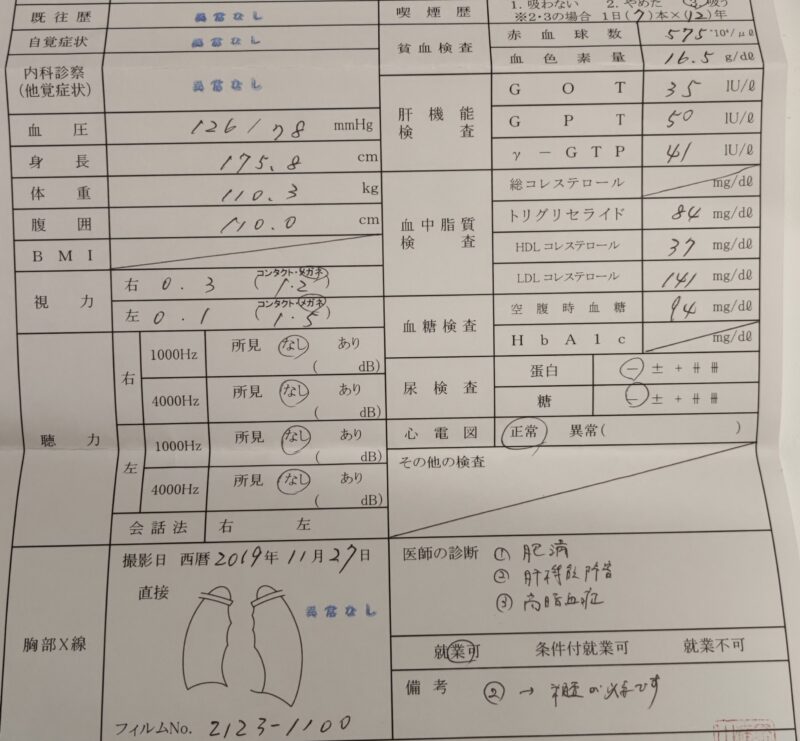 既往歴 異常なし
自覚症状 異常なし
内科診察 異常なし
(他覚症状)
血圧 126/78 mmHg
身長 175.8 cm
体重 110.3 kg
腹囲 110.0 cm
BMI
視力 右 0.3 (1.2) コンタクト・メガネ
左 0.1 (1.5) コンタクト・メガネ
聴力 右 1000Hz 所見 なし あり ( dB)
4000Hz 所見 なし あり ( dB)
左 1000Hz 所見 なし あり ( dB)
4000Hz 所見 なし あり ( dB)
会話法 右 左
胸部X線
撮影日 西暦 2019年 11月27日
直接 異常なし
フィルムNo. 2123-1100
喫煙歴 1. 吸わない 2. やめた 3. 吸う
※2・3の場合 1日(7)本×(12)年
貧血検査 赤血球数 575 ×10⁴/μℓ
血色素量 16.5 g/dℓ
肝機能検査 GOT 35 IU/ℓ
GPT 50 IU/ℓ
γ-GTP 41 IU/ℓ
血中脂質検査 総コレステロール mg/dℓ
トリグリセライド 84 mg/dℓ
HDLコレステロール 37 mg/dℓ
LDLコレステロール 141 mg/dℓ
血糖検査 空腹時血糖 94 mg/dℓ
HbA1c mg/dℓ
尿検査 蛋白 − ± + ⧺ ⧻
糖 − ± + ⧺ ⧻
心電図 正常 異常( )
その他の検査
医師の診断 ① 肥満
② 肝機能障害
③ 高脂血症
就業可 条件付就業可 就業不可
備考 ② → が必要です